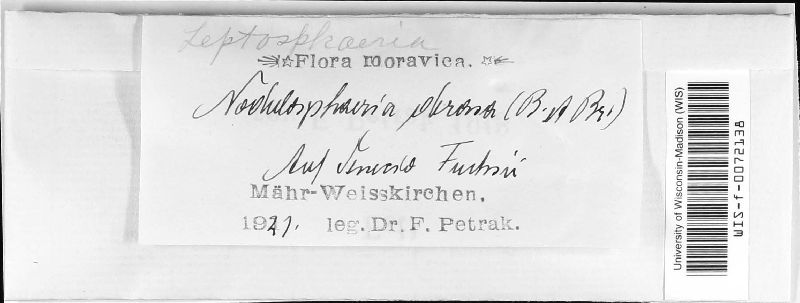 Leptosphaeria
Flora moravica.
Nodulosphaeria derasa (B. et Br.)
Auf Senecio Fuchsii
Mähr-Weisskirchen.
1927. leg. Dr. F. Petrak.
University of Wisconsin-Madison (WIS)
WIS-f-0072138